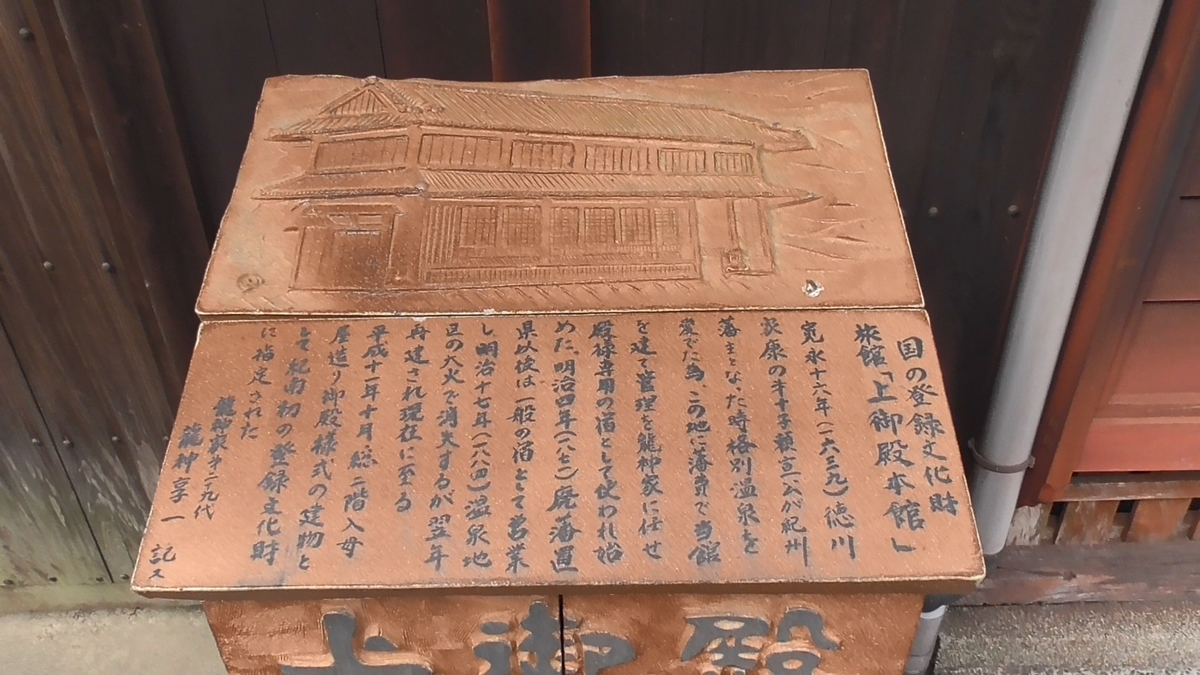 国の登録文化財
旅館「上御殿本館」
寛永十六年(一六三九)徳川
家康の第十子頼宣公が紀州
藩主となった時格別温泉を
愛でた為、この地に藩費で当館
を建て管理を龍神家に任せ
殿様専用の宿として使われ始
めた。明治四年(一八七一)廃藩置
県以後は一般の宿として営業
し明治十七年(一八八四)温泉地
一旦の大火で消失するが翌年
再建され現在に至る
平成十一年十月総二階入母
屋造り御殿様式の建物と
して紀南初の登録文化財
に指定された
龍神家第二九代
龍神享一
記ス
上御殿